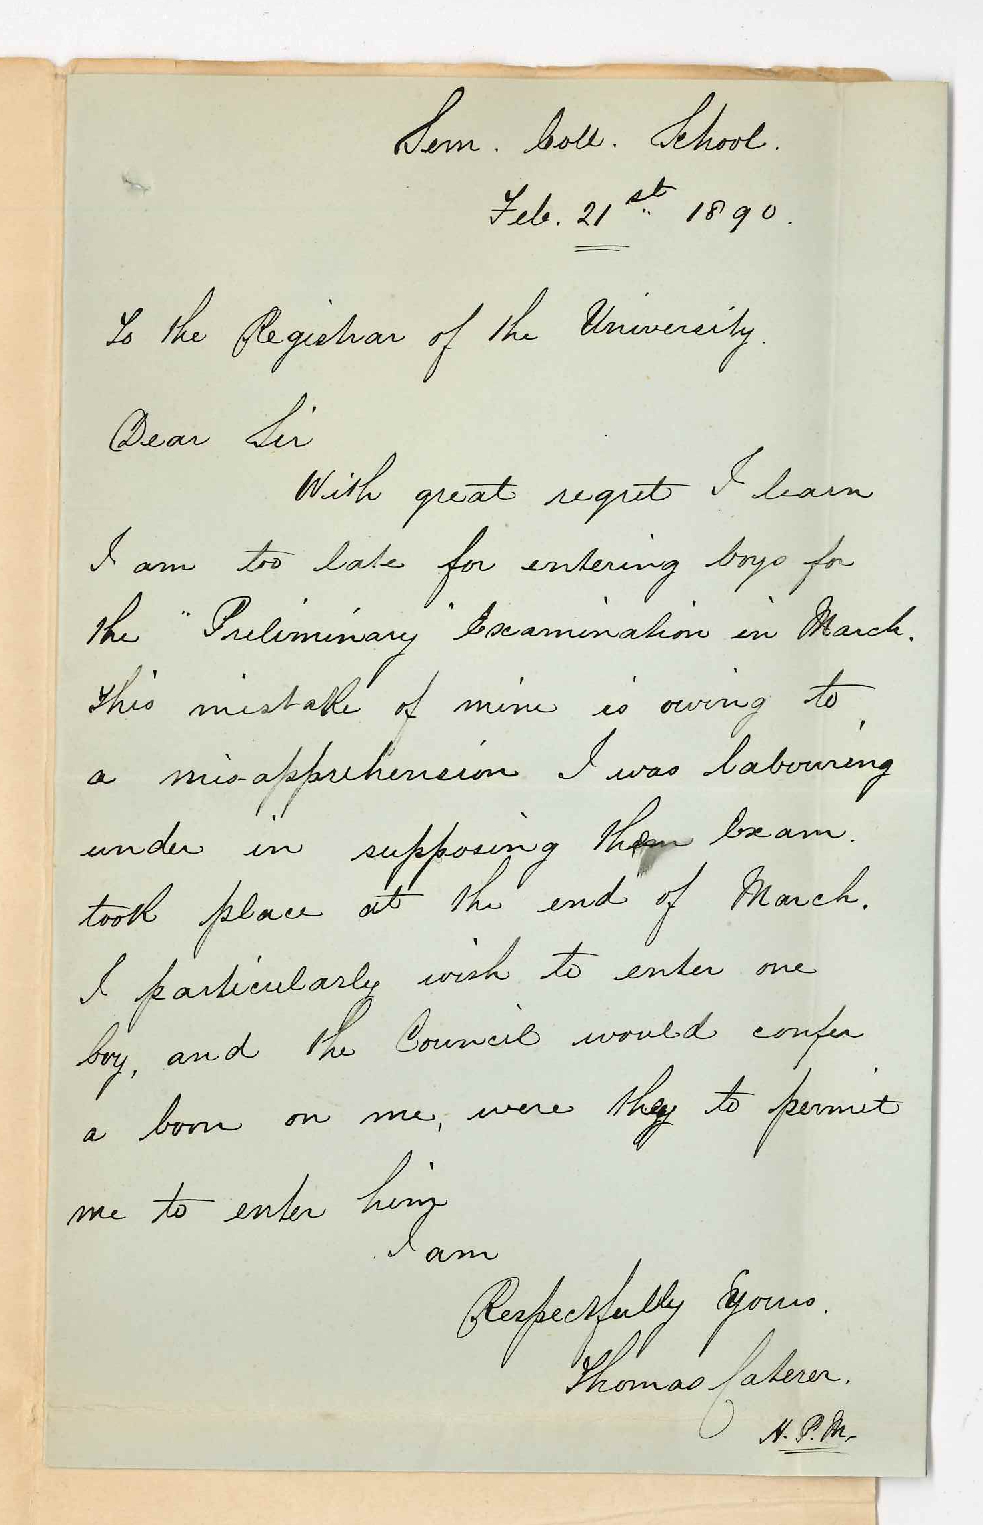 Sem. Coll. School.
Feb. 21st 1890.
To the Registrar of the University.
Dear Sir
With great regret I learn
I am too late for entering boys for
the "Preliminary" Examination in March.
This mistake of mine is owing to
a mis-apprehension I was labouring
under in supposing them Exam.
took place at the end of March.
I particularly wish to enter one
boy, and the Council would confer
a boon on me, were they to permit
me to enter him
I am
Respectfully Yours.
Thomas Caterer.
H.P.M.